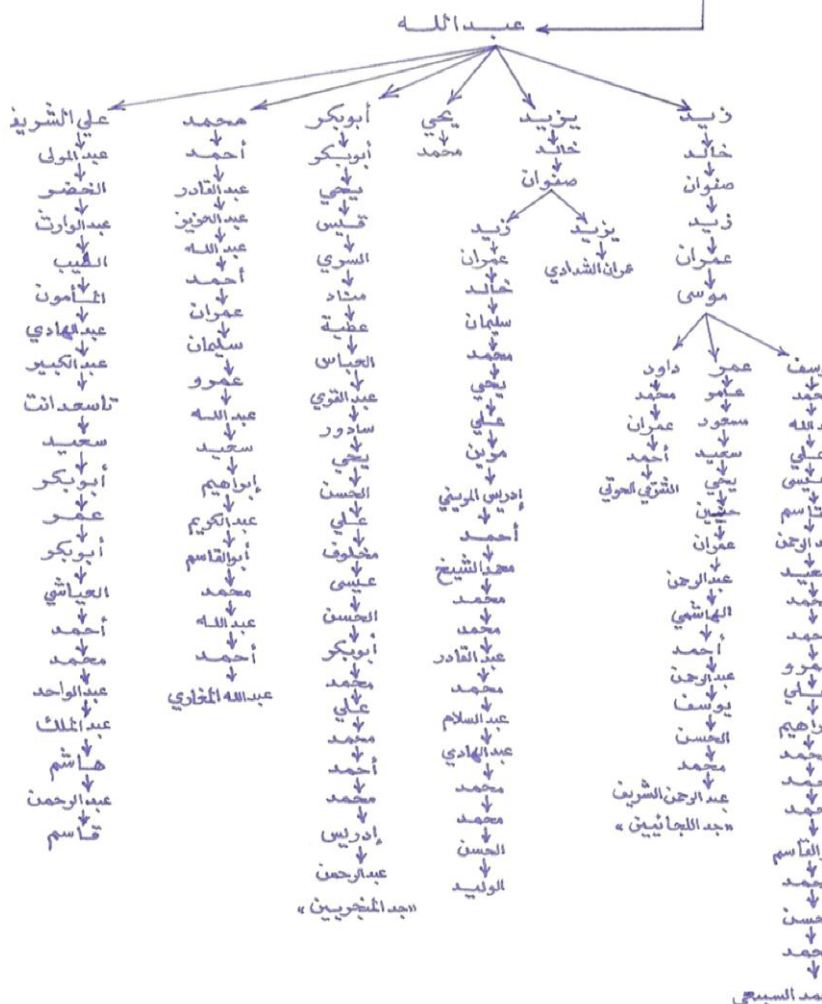 عبدالله
زيد
خالد
صفوان
زيد
عمران
موسى
وسف
حمد
دالله
علي
عيسى
قاسم
دالرحمن
عيد
حمد
حمد
مرو
علي
راهيم
حمد
حمد
حمد
القاسم
حمد
حسن
حمد
حمد السبيعي
عمر
عامر
مسعود
سعيد
يحي
حسين
عمران
عبدالرحمن
الهاشمي
أحمد
عبدالرحمن
يوسف
الحسن
محمد
عبدالرحمن الشريف
«جد اللجائيين»
داود
محمد
عمران
أحمد
يزيد
خالد
صفوان
يزيد
عمران الشدادي
زيد
عمران
خالد
سليمان
محمد
يحي
علي
مرين
إدريس المريني
أحمد
محمد الشيخ
محمد
محمد
عبدالقادر
محمد
عبدالسلام
عبدالهادي
محمد
محمد
الحسن
الوليد
يحي
محمد
أبوبكر
أبوبكر
يحي
قيس
السري
عطية
العباس
عبدالقوي
سادور
يحي
الحسن
علي
مخلوف
عيسى
الحسن
أبوبكر
محمد
علي
محمد
أحمد
محمد
إدريس
عبدالرحمن
«جد المنجريين»
محمد
أحمد
عبدالقادر
عبدالعزيز
عبدالله
أحمد
عمران
سليمان
عمرو
عبدالله
سعيد
إبراهيم
عبدالكريم
أبوالقاسم
محمد
عبدالله
أحمد
عبدالله المغاري
علي الشريف
عبدالمولى
الخضر
عبدالوارث
الطيب
المأمون
عبدالهادي
عبدالكبير
تاسعدانت
سعيد
أبوبكر
عمر
أبوبكر
العياشي
أحمد
محمد
عبدالواحد
عبدالملك
هاشم
عبدالرحمن
قاسم